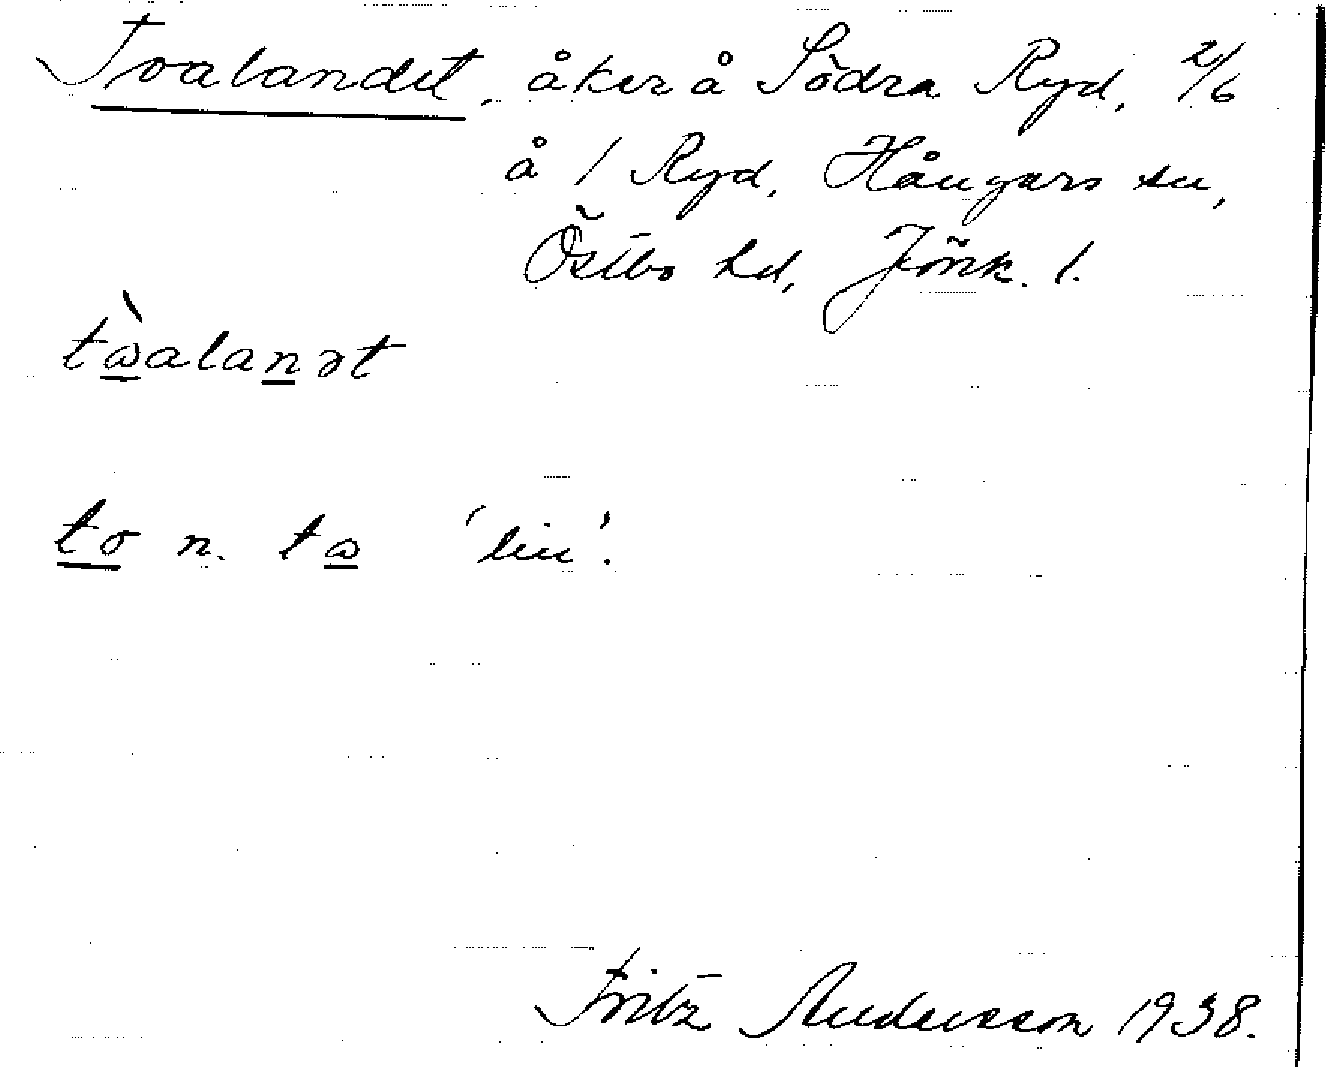 Toalandet, åker å Södra Ryd, 2/6
å 1 Ryd, Hångers sn,
Östbo hd, Jönk. l.
tὼalanət
to n. tω 'lin'.
Fritz Andersson 1938.